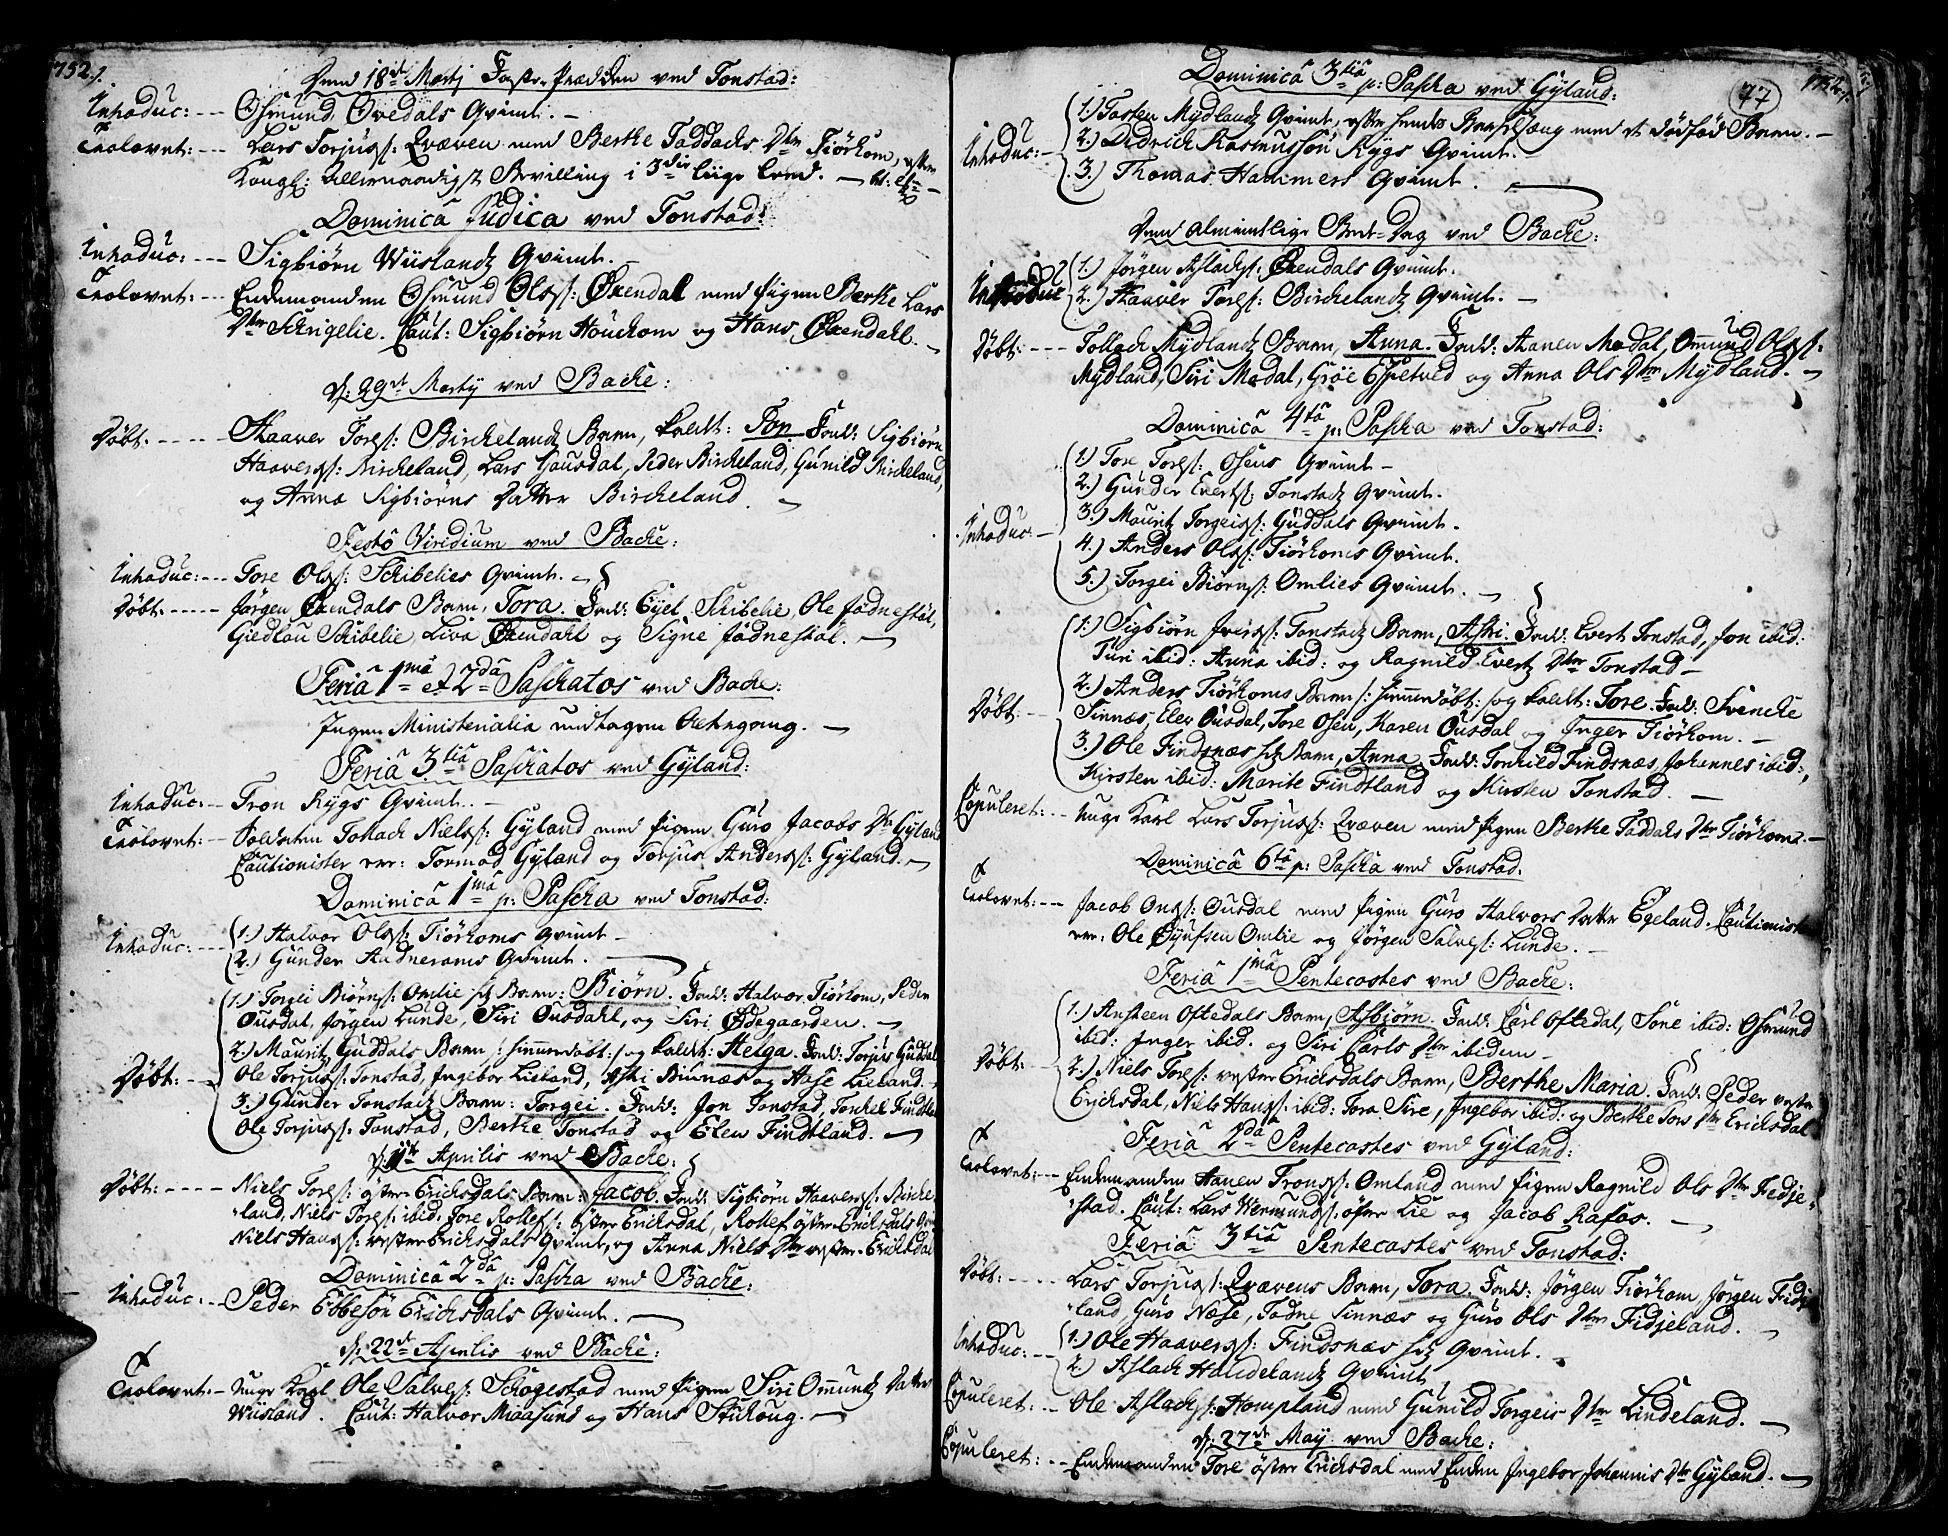 1752.
Dend 18de Martj Faste-Prædiken ved Tonstad:
Introduc: --- Osmund Ovedals Qvinde. -
Trolovet: --- Lars Torjuss: Qvæven med Berthe Taddachs Dtter Tiørhom, efter
Kongl: allernaadigst Bevilling i 3die liige Leed. -
Dominica Judica ved Tonstad:
Introduc: --- Sigbiørn Wiislands Qvinde. -
Trolovet: --- Enkemanden Osmund Olss: Øxendal med Pigen Berthe Lars
Dtter Schregelie. Caut: Sigbiørn Houchom og Hans Øxendahl. -
d: 29de Martij ved Backe:
Døbt: ----- Haaver Tores: Birchelands Barn, kaldt: Jon. Fadd: Sigbiørn
Haavers: Bircheland, Lars Hausdal, Peder Bircheland, Gunild Bircheland,
og Anna Sigbiørns Datter Bircheland. -
Festo Viridium ved Backe:
Introduc: --- Tore Olss: Schibelies Qvinde. -
Døbt: ----- Jørgen Øxendals Barn, Tora. Fadd: Eyel Schibelie, Ole Jødnestøl,
Giedlau Schibelie, Liva Øxendahl og Signe Jødnestøl. -
Feria 1ma et 2da Paschatos ved Backe:
Ingen Ministerialia undtagen Altergang. -
Feria 3tia Paschatos ved Gyland:
Introduc: -- Tron Rygs Qvinde. -
Trolovet: -- Soldaten Tollach Nielss: Gyland med Pigen Guro Jacobs Dtr Gyland
Cautionister ere: Tormod Gyland og Torjus Anderss: Gyland. -
Dominica 1ma p: Pascha ved Tonstad:
Introduc: --- 1.) Halvor Olss: Tiørhoms Qvinde -
2.) Gunder Haddnerams Qvinde. -
1.) Torgei Biørns: Omlie Barn: Biørn. Fadd: Halvor Tiørhom, Peder
Ousdal, Jørgen Lunde, Siri Ousdahl, og Siri Ødegaarden. -
2.) Mauritz Guddals Barn /: hiemmedøbt :/ og kaldt: Helga. Fadd: Torjus Guddal
Døbt: -- Ole Torjuss: Tonstad, Ingebor Lieland, Astri Binnæs og Aase Lieland. -
3.) Gunder Tonstads Barn: Torgei. Fadd: Jon Tonstad, Tonkel Findtland
Ole Torjuss: Tonstad, Berthe Tonstad og Elen Findtland. -
d: 11te Aprilis ved Backe:
Døbt: ----- Niels Tores: øster Ericksdals Barn: Jacob. Fadd: Sigbiørn Haavers: Birche
land, Niels Tores: ibid: Tore Rollefs: øster Ericksdal, Rollef øster Ericksdals Qvinde
Niels Hanss: vester Ericksdals Qvinde, og Anna Niels Dtter vester Ericksdal
Dominica 2da p: Pascha ved Backe:
Introduc: -- Peder Ebbesøn Ericksdals Qvinde. -
d: 22de Aprilis ved Backe:
Trolovet: - Unge Karl Ole Salves: Schogestad med Pigen Siri Omunds Datter
Wiisland. Caut: Halvor Miaasund og Hans Skikoug. -
77
1752.
Dominica 3tia p: Pascha ved Gyland:
1.) Tosten Mydlands Qvinde, efter hendes Barselseng med et dødfød Barn. -
Introduc: - 2.) Didrich Rasmussøn Rygs Qvinde. -
3.) Thomas Hammers Qvinde. -
Dend almindelige Bede-Dag ved Backe:
Introduc 1.) Jørgen Aslachs: Øxendals Qvinde.
2.) Haaver Tores: Birchelands Qvinde. -
Døbt: --- Tollach Mydlands Barn, Anna. Fadd: Aanen Modal, Omund Olss:
Mydland, Siri Modal, Grøe Espetved og Anna Ols Dtter Mydland. -
Dominica 4ta p: Pascha ved Tonstad:
1.) Tore Tores: Osens Qvinde -
2.) Gunder Everts: Tonstads Qvinde.
Introduc: - 3.) Mauritz Torgeis: Guddals Qvinde.
4.) Anders Olss: Tiørhoms Qvinde.
5.) Torgei Biørns: Omlies Qvinde. -
1.) Sigbiørn Ivers: Tonstads Barn, Astri. Fadd: Evert Tonstad, Jon ibid:
Turi ibid: Anna ibid: og Ragnild Everts Dtter Tonstad -
2.) Anders Tiørhoms Barn /: hiemmedøbt :/ og kaldt: Tore. Fadd: Svencke
Døbt: -- Sinnæs, Elev Ousdal, Tore Osen, Karen Ousdal og Inger Tiørhom. -
3.) Ole Findsnæs Barn, Anna. Fadd: Tonkild Findsnæs, Johannes ibid:,
Kirsten ibid: Marite Findtland og Kirsten Tonstad. -
Copuleret: -- Unge Karl Lars Torjuss: Qvæven med Pigen Berthe Taddachs Dtter Tiørhom. -
Dominica 6ta p: Pascha ved Tonstad.
Trolovet: -- Jacob Ons: Ousdal med Pigen Guro Halvors Datter Egeland. Cautionist
ere: Ole Omlie og Jørgen Salves: Lunde. -
Feria 1ma Pentecostes ved Backe:
1.) Ansteen Oftedals Barn, Asbiørn. Fadd: Carl Oftedal, Tone ibid: Osmund
ibid: Inger ibid: og Siri Carls Dtter ibidem -
Døbt: -- 2.) Niels Tores: vester Ericksdals Barn, Berthe Maria. Fadd: Peder vester
Ericksdal, Niels Hanss: ibid: Tora Sire, Ingebor ibid: og Berthe Tors Dtr Ericksdal
Feria 2da Pentecostes ved Gyland:
Trolovet: -- Enkemanden Aanen Trons: Omland med Pigen Ragnild Ols Dtter Fidje-
stad. Caut: Lars Wermunds: øfre Lie og Jacob Rafos. -
Feria 3tia Pentecostes ved Tonstad:
Døbt: ---- Lars Torjuss: Qvævens Barn, Tora. Fadd: Jørgen Tiørhom, Jørgen Fidje
land, Guro Næse, Todne Sinnæs og Guro Ols Dtter Fidjeland. -
Introduc: -- 1.) Ole Haavers: Findsnæs Qvinde. -
2.) Aslach Haudelands Qvinde
Copuleret: -- Ole Aslachs: Hompland med Gunild Torgeis Dtter Lindeland. -
d: 27de Maij ved Backe:
Copuleret: -- Enkemanden Tore øster Ericksdal med Enken Ingebor Johannis Dtr Gyland. -